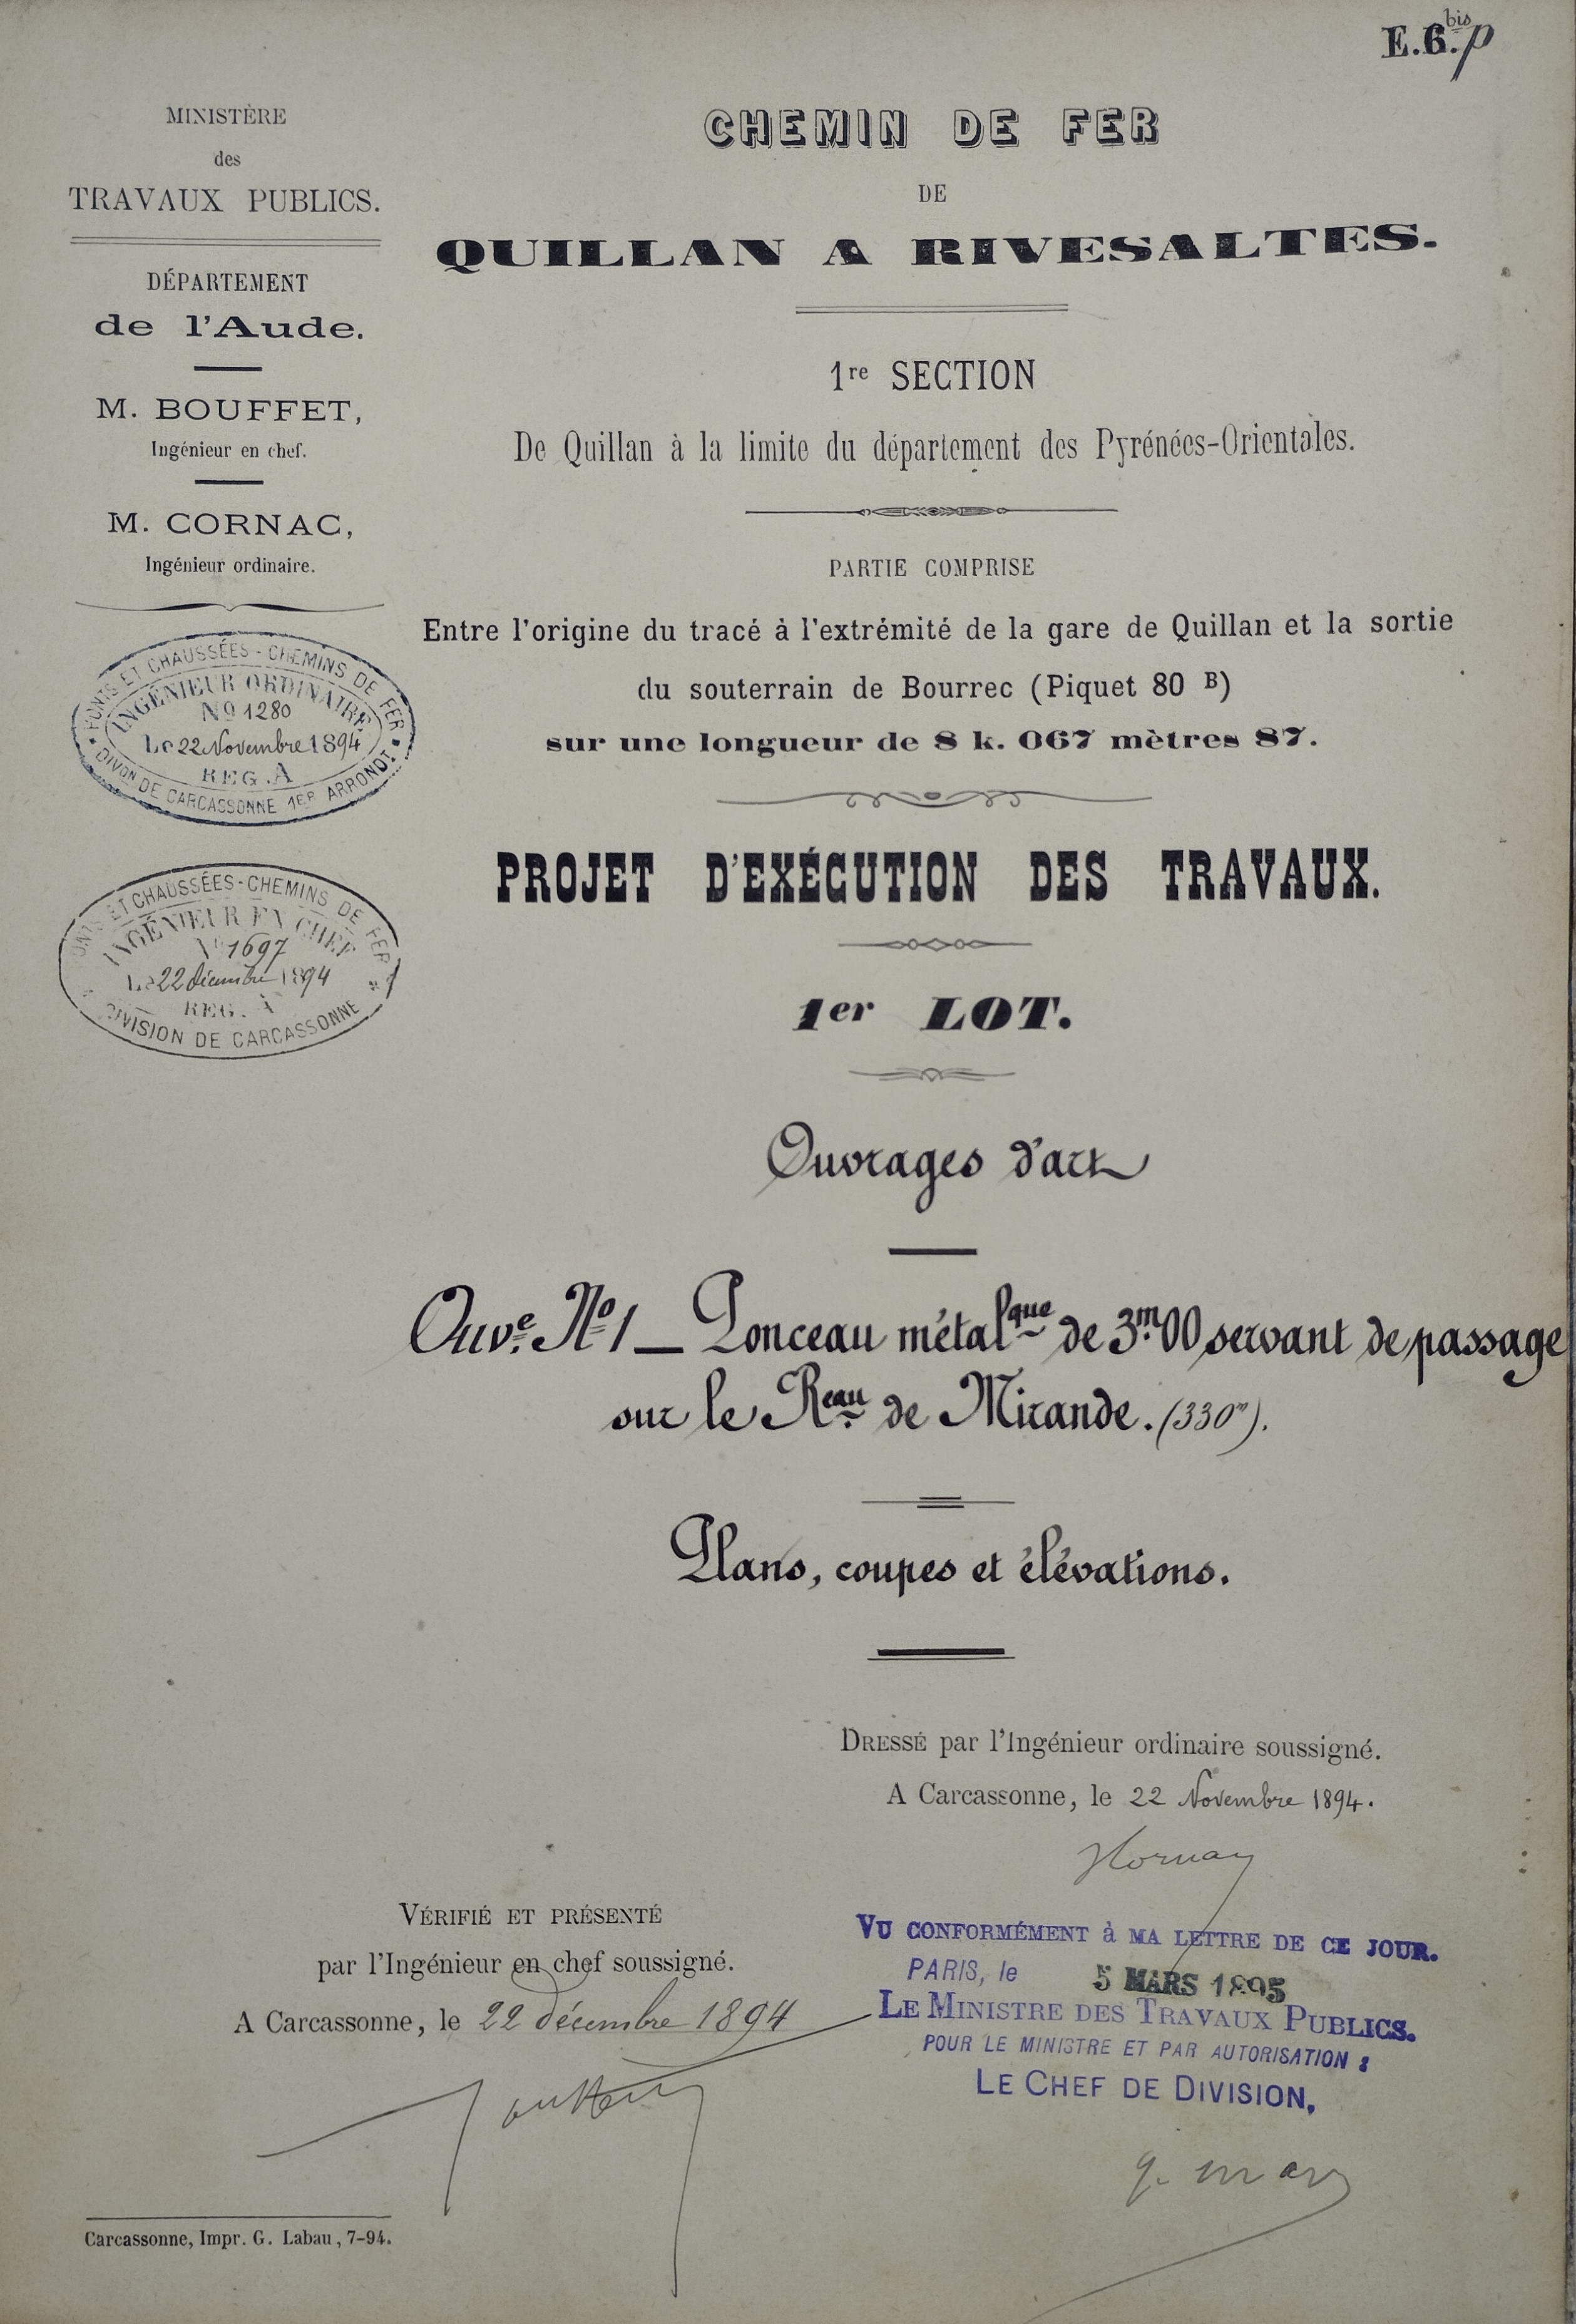 E.6.bis p
MINISTÈRE
des
TRAVAUX PUBLICS.
DÉPARTEMENT
de l'Aude.
M. BOUFFET,
Ingénieur en chef.
M. CORNAC,
Ingénieur ordinaire.
PONTS ET CHAUSSÉES - CHEMINS DE FER
INGÉNIEUR ORDINAIRE
No 1280
Le 22 Novembre 1894
REG. A
DIVON DE CARCASSONNE 1ER ARRONDT
PONTS ET CHAUSSÉES - CHEMINS DE FER
INGÉNIEUR EN CHEF
No 1697
Le 22 décembre 1894
REG. A
DIVISION DE CARCASSONNE
CHEMIN DE FER
DE
QUILLAN A RIVESALTES.
1re SECTION
De Quillan à la limite du département des Pyrénées-Orientales.
PARTIE COMPRISE
Entre l'origine du tracé à l'extrémité de la gare de Quillan et la sortie
du souterrain de Bourrec (Piquet 80 B)
sur une longueur de 8 k. 067 mètres 87.
PROJET D'EXÉCUTION DES TRAVAUX.
1er LOT.
Ouvrages d'art
Ouv.e No 1 — Ponceau métalque de 3m.00 servant de passage
sur le Reau de Mirande. (330m).
Plans, coupes et élévations.
DRESSÉ par l'Ingénieur ordinaire soussigné.
A Carcassonne, le 22 Novembre 1894.
VÉRIFIÉ ET PRÉSENTÉ
par l'Ingénieur en chef soussigné.
A Carcassonne, le 22 décembre 1894
VU CONFORMÉMENT à MA LETTRE DE CE JOUR.
PARIS, le 5 MARS 1895
LE MINISTRE DES TRAVAUX PUBLICS.
POUR LE MINISTRE ET PAR AUTORISATION :
LE CHEF DE DIVISION,
Carcassonne, Impr. G. Labau, 7-94.